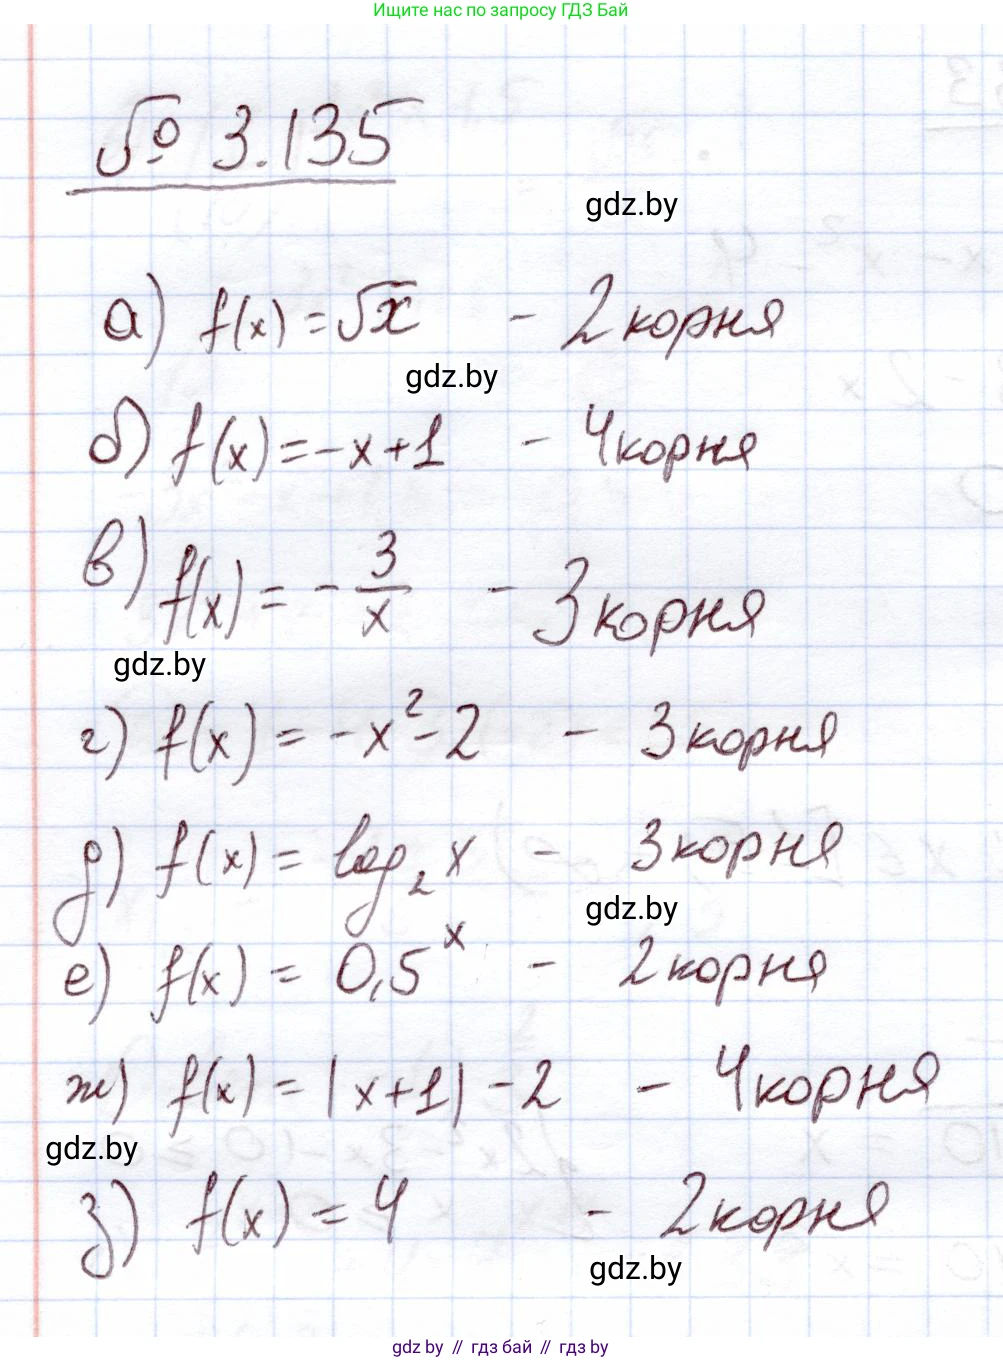 Ищите нас по запросу ГДЗ Бай
№ 3.135
gdz.by
а) f(x) = √x - 2 корня
gdz.by
б) f(x) = -x+1 - 4 корня
в) f(x) = - 3/x - 3 корня
gdz.by
г) f(x) = -x² - 2 - 3 корня
д) f(x) = log₂ x - 3 корня
gdz.by
е) f(x) = 0,5^x - 2 корня
ж) f(x) = |x+1| - 2 - 4 корня
gdz.by
з) f(x) = 4 - 2 корня
gdz.by
gdz.by // гдз бай // gdz.by